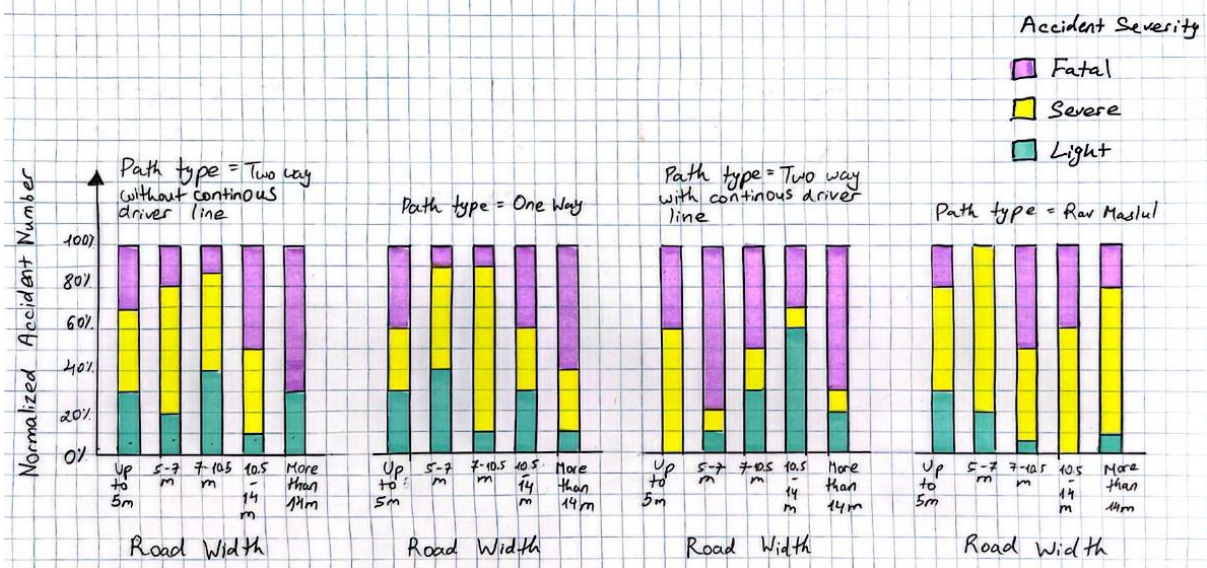 Accident Severity
Fatal
Severe
Light
Normalized Accident Number
100%
80%
60%
40%
20%
0%
Path type = Two way
without continous
driver line
Up
to
5m
5-7
m
7-10.5
m
10.5
-
14
m
More
than
14m
Road Width
Path type = One Way
Up
to
5m
5-7
m
7-10.5
m
10.5
-
14
m
More
than
14m
Road Width
Path type = Two way
with continous driver
line
Up
to
5m
5-7
m
7-10.5
m
10.5
-
14
m
More
than
14m
Road Width
Path type = Rav Maslul
Up
to
5m
5-7
m
7-10.5
m
10.5
-
14
m
More
than
14m
Road Width